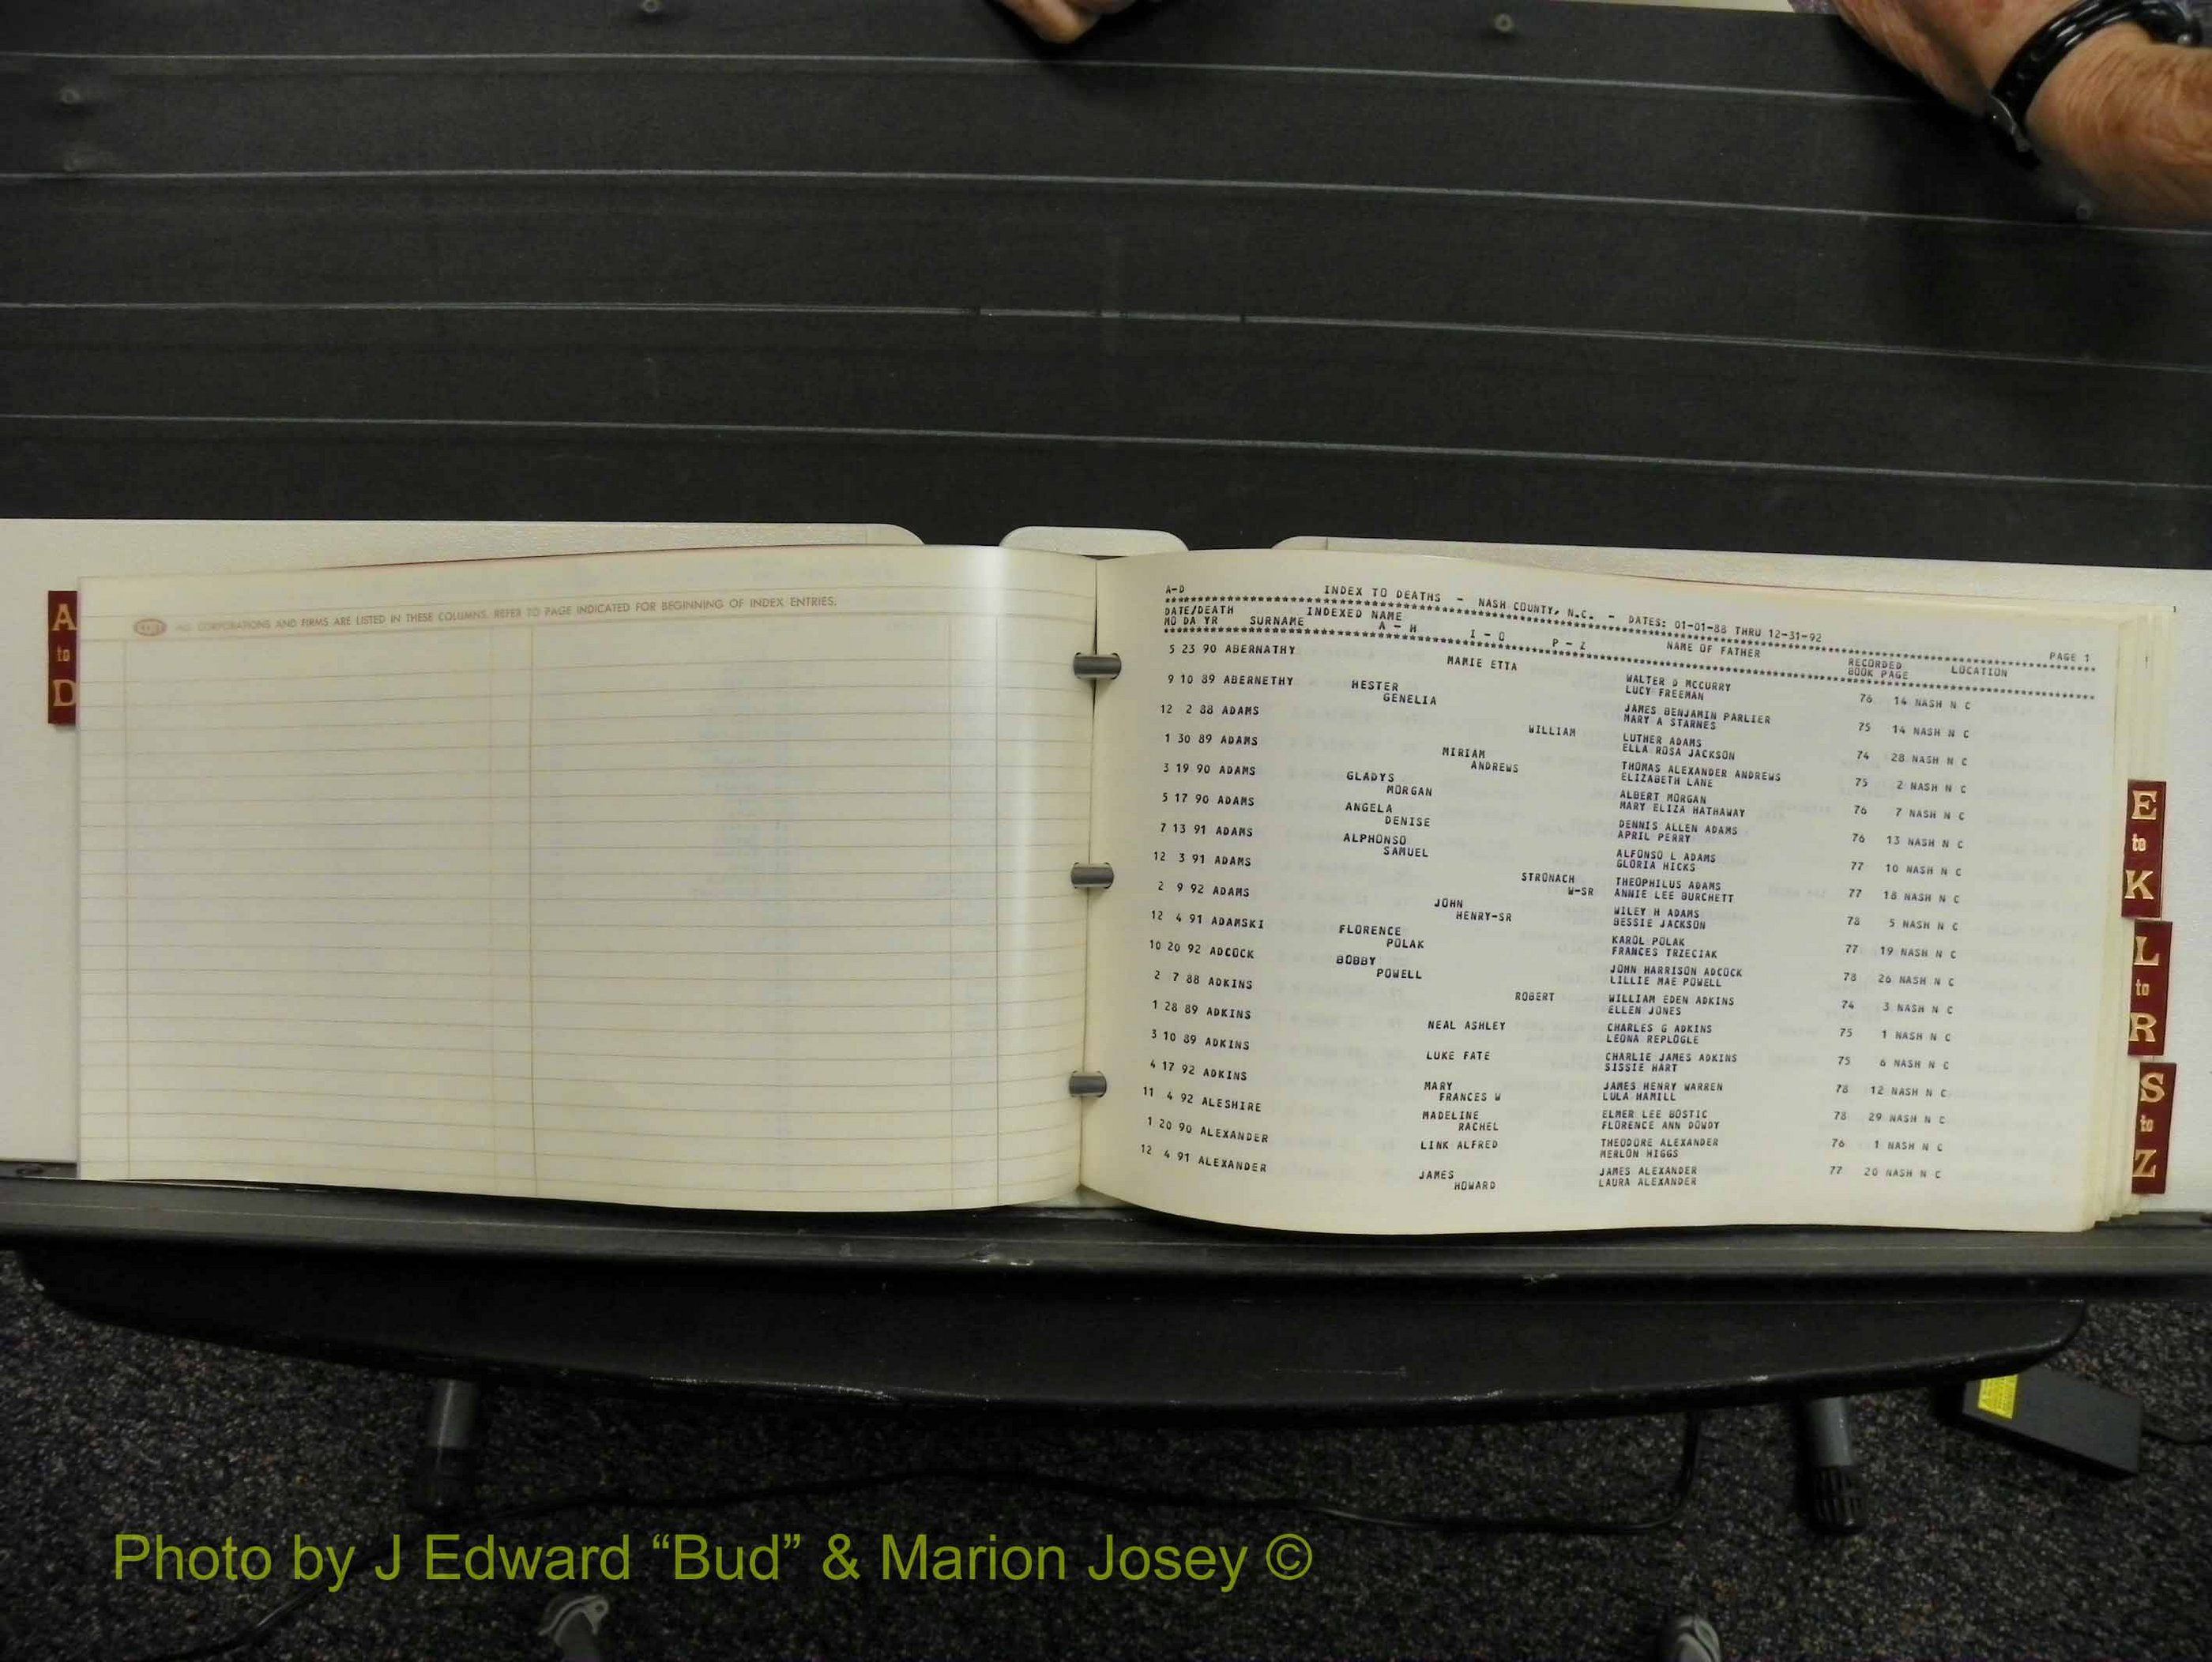 A
to
D
COTT ALL CORPORATIONS AND FIRMS ARE LISTED IN THESE COLUMNS. REFER TO PAGE INDICATED FOR BEGINNING OF INDEX ENTRIES.
A-D INDEX TO DEATHS - NASH COUNTY, N.C. - DATES: 01-01-88 THRU 12-31-92 PAGE 1
DATE/DEATH INDEXED NAME NAME OF FATHER RECORDED LOCATION
MO DA YR SURNAME A - H I - O P - Z BOOK PAGE
5 23 90 ABERNATHY MARIE ETTA WALTER D MCCURRY 76 14 NASH N C
LUCY FREEMAN
9 10 89 ABERNETHY HESTER JAMES BENJAMIN PARLIER 75 14 NASH N C
GENELIA MARY A STARNES
12 2 88 ADAMS WILLIAM LUTHER ADAMS 74 28 NASH N C
ELLA ROSA JACKSON
1 30 89 ADAMS MIRIAM THOMAS ALEXANDER ANDREWS 75 2 NASH N C
ANDREWS ELIZABETH LANE
3 19 90 ADAMS GLADYS ALBERT MORGAN 76 7 NASH N C
MORGAN MARY ELIZA HATHAWAY
5 17 90 ADAMS ANGELA DENNIS ALLEN ADAMS 76 13 NASH N C
DENISE APRIL PERRY
7 13 91 ADAMS ALPHONSO ALFONSO L ADAMS 77 10 NASH N C
SAMUEL GLORIA HICKS
12 3 91 ADAMS STRONACH THEOPHILUS ADAMS 77 18 NASH N C
W-SR ANNIE LEE BURCHETT
2 9 92 ADAMS JOHN WILEY H ADAMS 78 5 NASH N C
HENRY-SR BESSIE JACKSON
12 4 91 ADAMSKI FLORENCE KAROL POLAK 77 19 NASH N C
POLAK FRANCES TRZECIAK
10 20 92 ADCOCK BOBBY JOHN HARRISON ADCOCK 78 26 NASH N C
POWELL LILLIE MAE POWELL
2 7 88 ADKINS ROBERT WILLIAM EDEN ADKINS 74 3 NASH N C
ELLEN JONES
1 28 89 ADKINS NEAL ASHLEY CHARLES G ADKINS 75 1 NASH N C
LEONA REPLOGLE
3 10 89 ADKINS LUKE FATE CHARLIE JAMES ADKINS 75 6 NASH N C
SISSIE HART
4 17 92 ADKINS MARY JAMES HENRY WARREN 78 12 NASH N C
FRANCES W LULA HAMILL
11 4 92 ALESHIRE MADELINE ELMER LEE BOSTIC 78 29 NASH N C
RACHEL FLORENCE ANN DOWDY
1 20 90 ALEXANDER LINK ALFRED THEODORE ALEXANDER 76 1 NASH N C
MERLON HIGGS
12 4 91 ALEXANDER JAMES JAMES ALEXANDER 77 20 NASH N C
HOWARD LAURA ALEXANDER
E
to
K
L
to
R
S
to
Z
Photo by J Edward “Bud” & Marion Josey ©